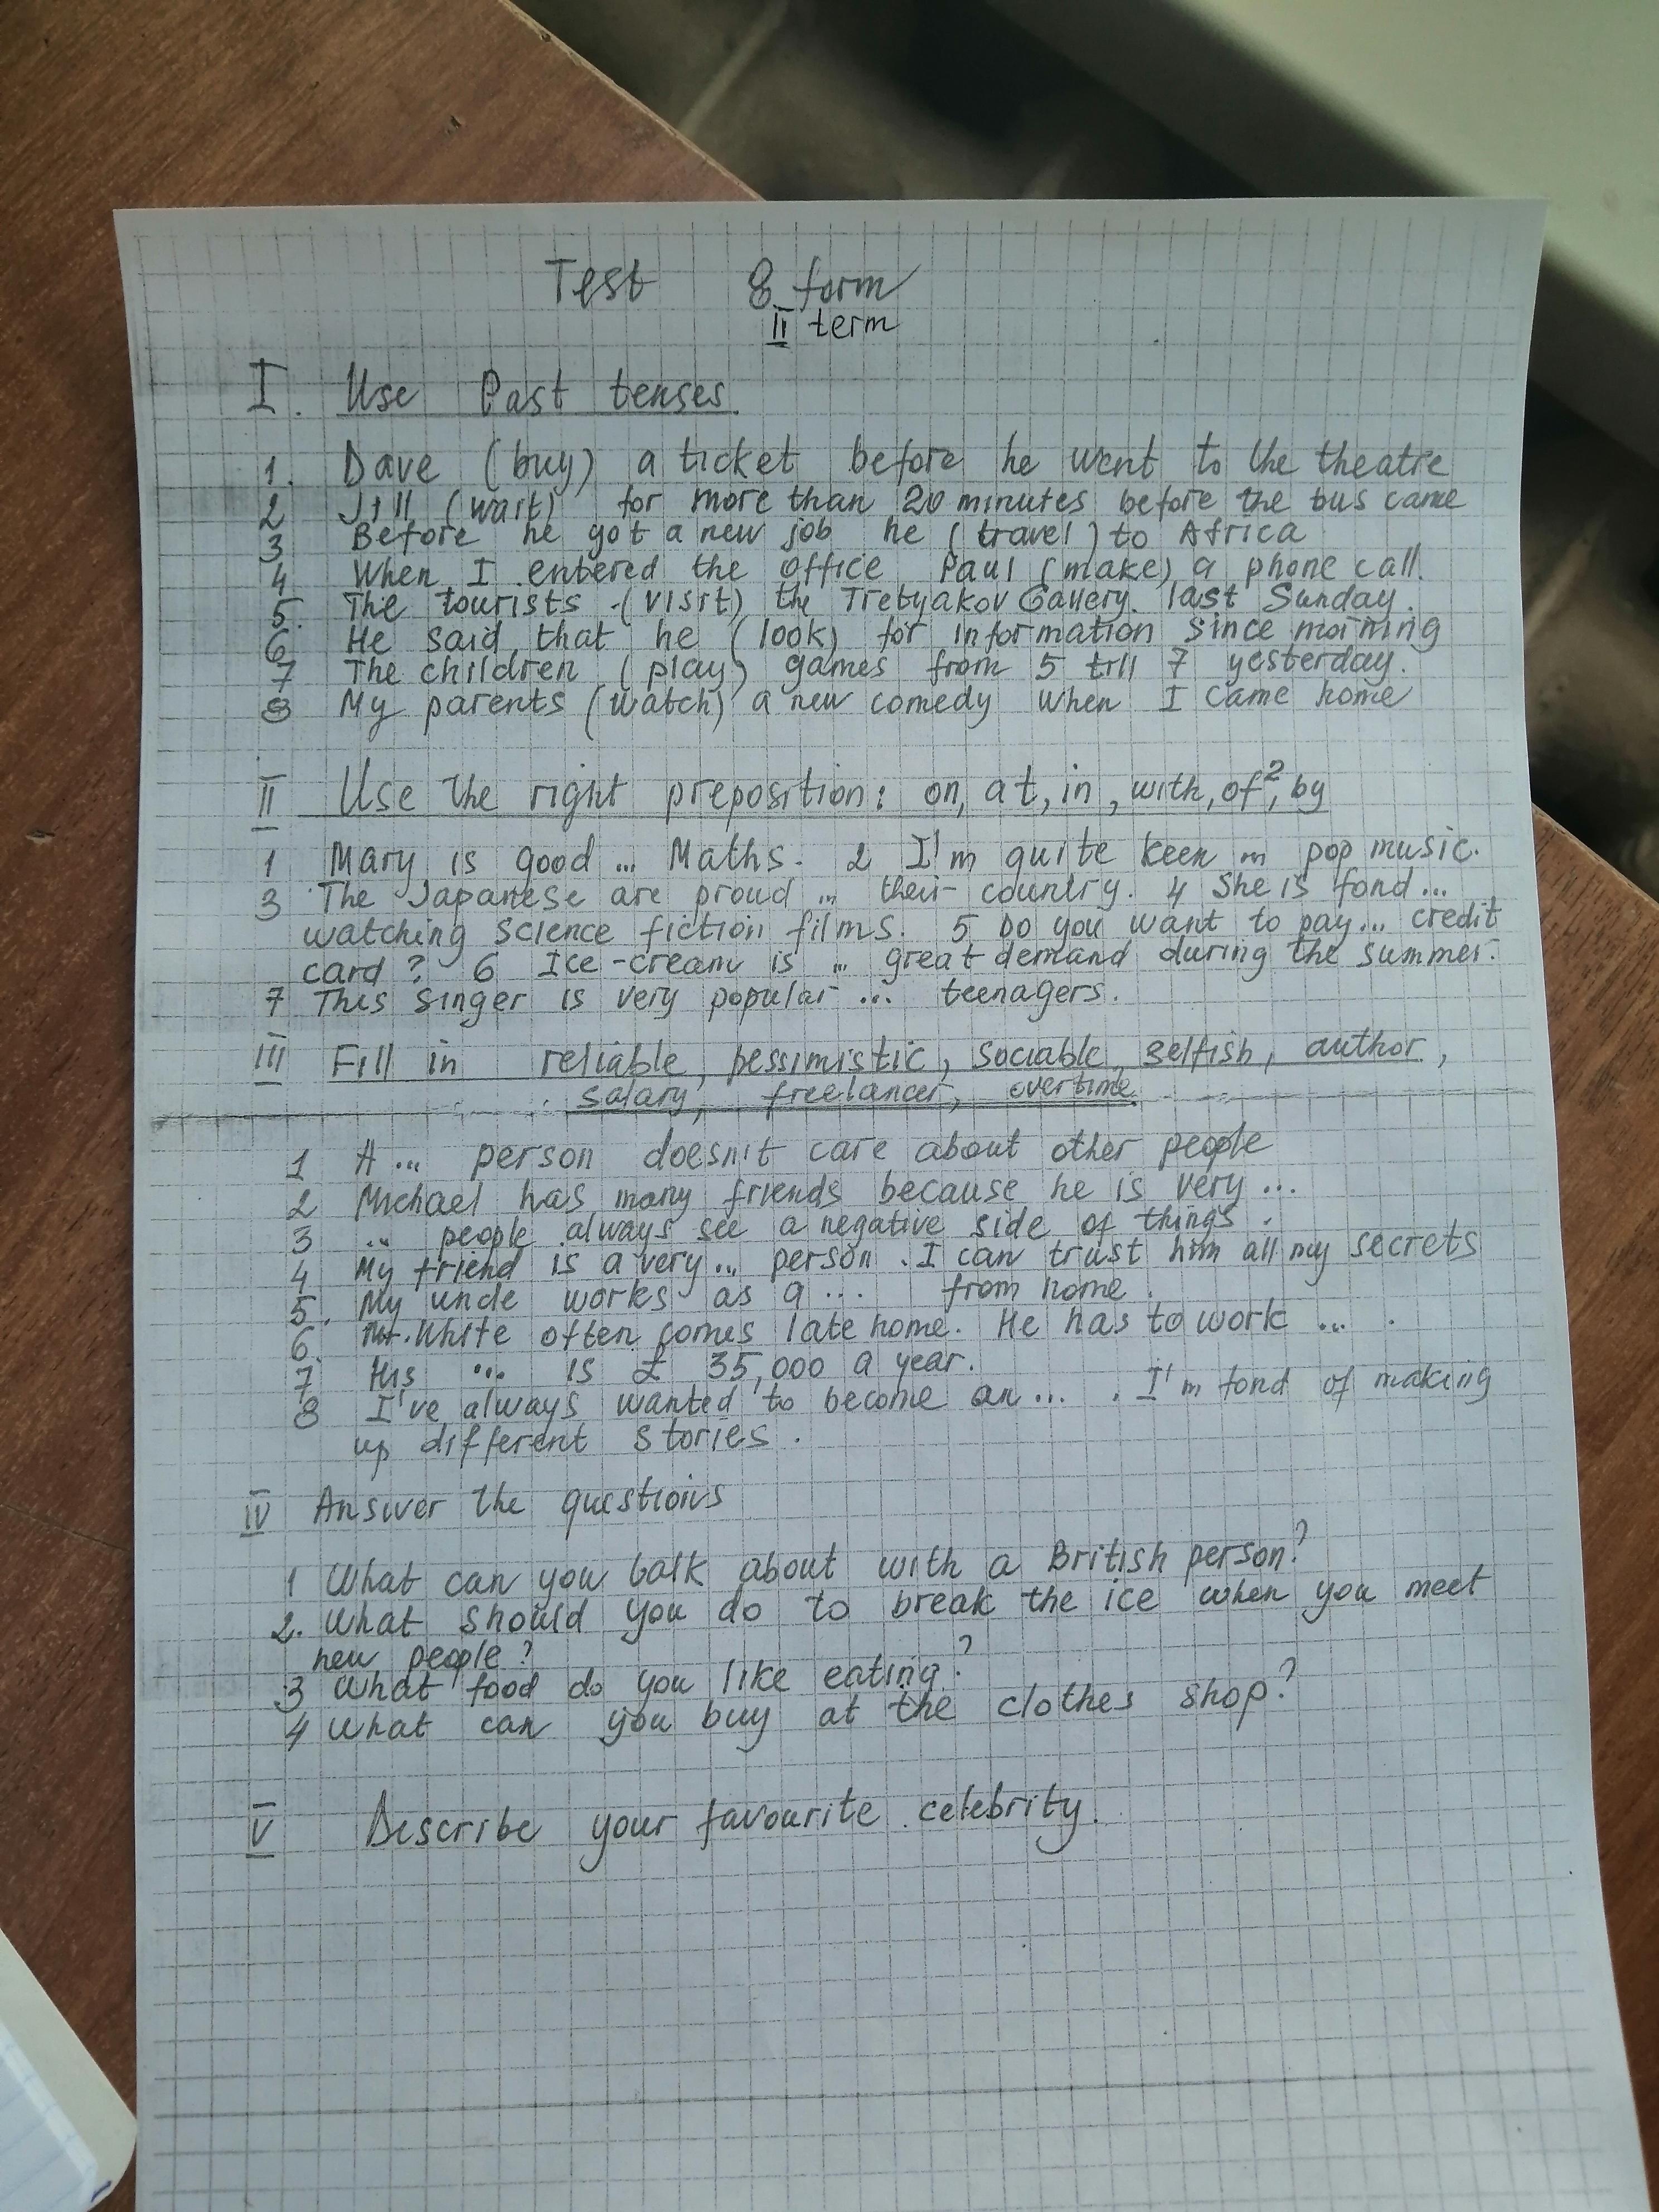 Test 8 form
II term
I. Use Past tenses.
1. Dave (buy) a ticket before he went to the theatre
2 Jill (wait) for more than 20 minutes before the bus came
3 Before he got a new job he (travel) to Africa
4 When I entered the office Paul (make) a phone call.
5. The tourists (visit) the Tretyakov Gallery last Sunday.
6 He said that he (look) for information since morning
7 The children (play) games from 5 till 7 yesterday.
8 My parents (watch) a new comedy when I came home
II Use the right preposition: on, at, in, with, of², by
1 Mary is good ... Maths. 2 I'm quite keen ... pop music.
3 The Japanese are proud ... their country. 4 She is fond ...
watching science fiction films. 5 Do you want to pay ... credit
card? 6 Ice-cream is ... great demand during the summer.
7 This singer is very popular ... teenagers.
III Fill in reliable, pessimistic, sociable, selfish, author,
salary, freelancer, overtime.
1 A ... person doesn't care about other people
2 Michael has many friends because he is very ...
3 ... people always see a negative side of things.
4 My friend is a very ... person. I can trust him all my secrets
5. My uncle works as a ... from home.
6. Mr. White often comes late home. He has to work ... .
7 His ... is £ 35,000 a year.
8 I've always wanted to become an ... . I'm fond of making
up different stories.
IV Answer the questions
1 What can you talk about with a British person?
2. What should you do to break the ice when you meet
new people?
3 What food do you like eating?
4 What can you buy at the clothes shop?
V Describe your favourite celebrity.